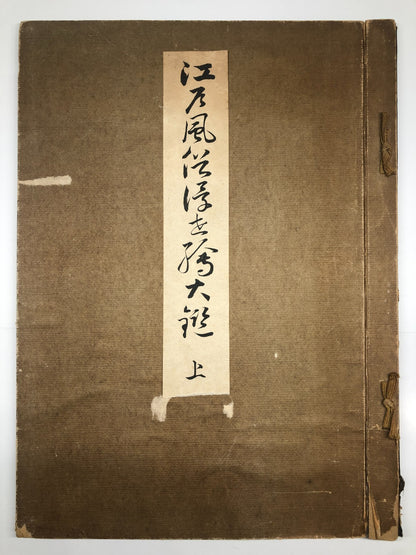 江戸風俗浮世繪大鑑
上